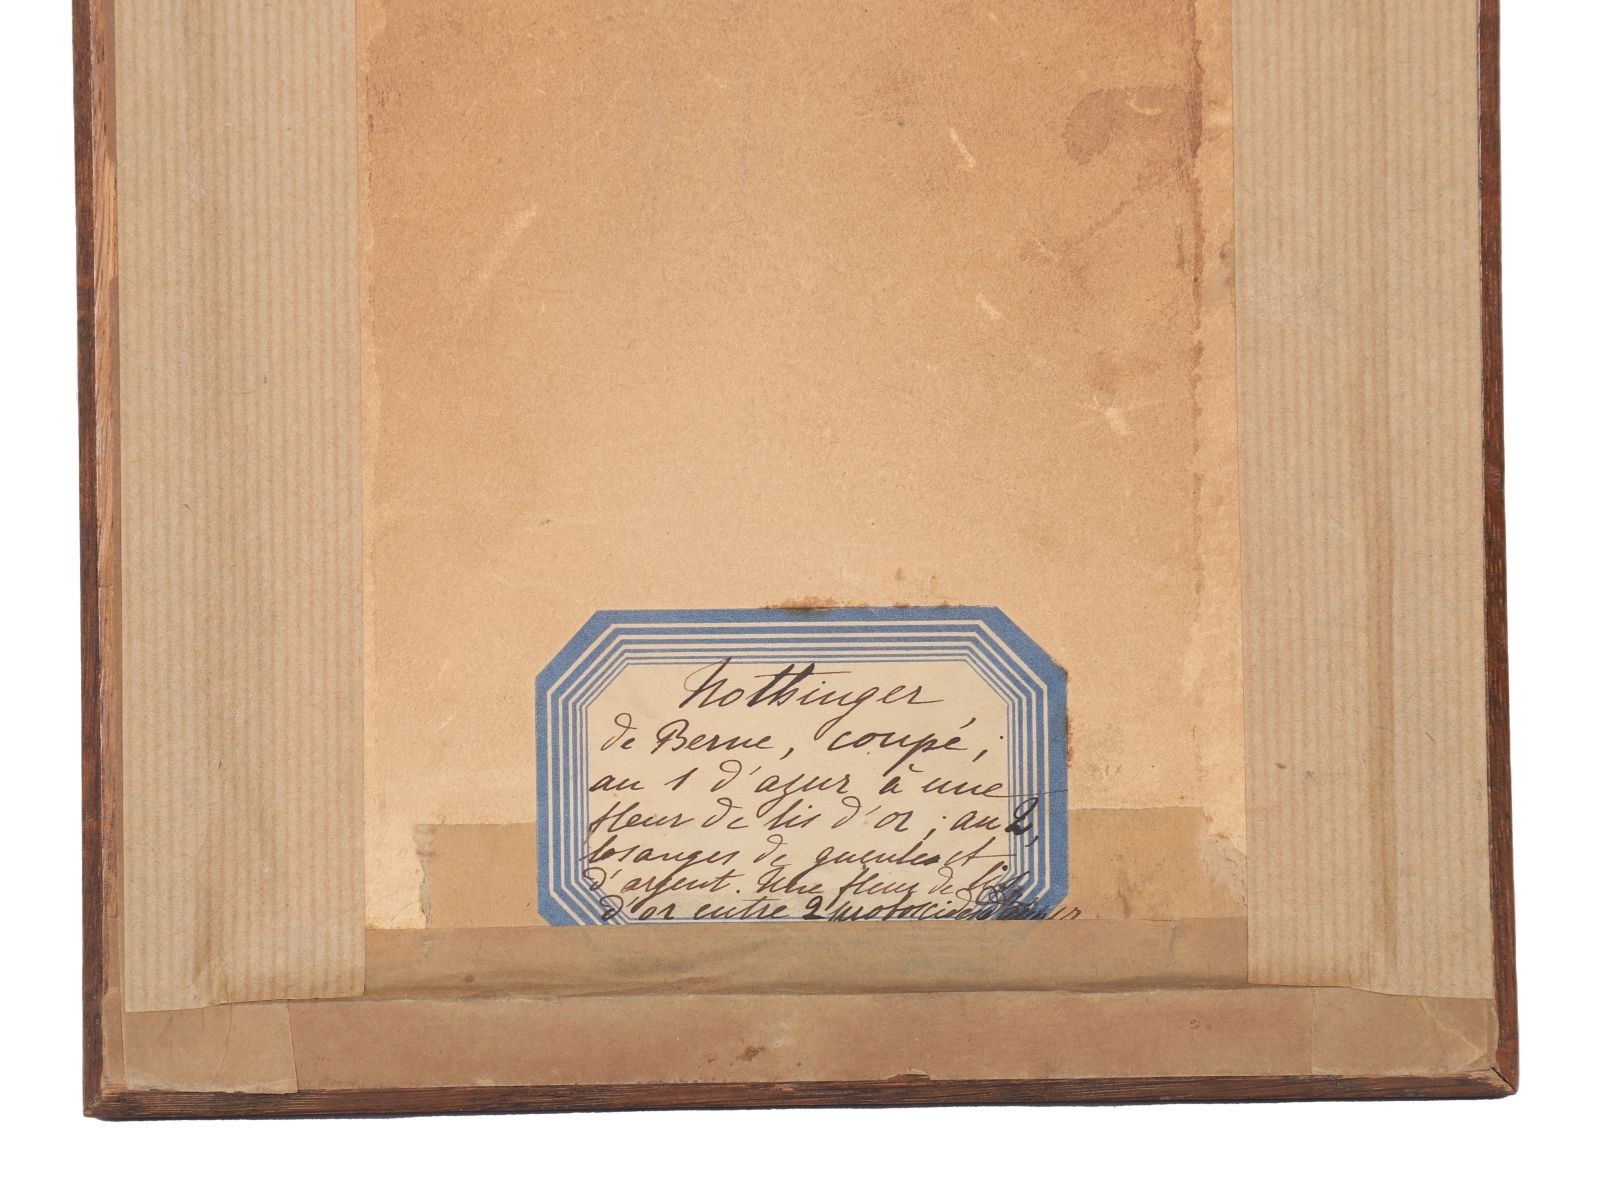 Nothinger
de Berne, coupé;
au 1 d'azur à une
fleur de lis d'or; au 2,
losanges de gueules et
d'argent. Une fleur de lis
d'or entre 2 proboscides d'azur